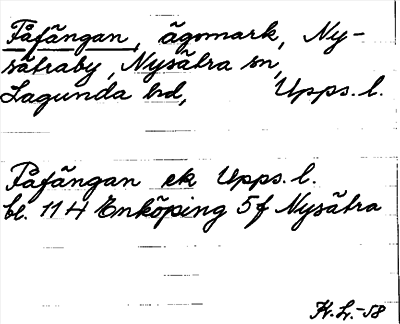 Fåfängan, ägomark, Ny-
sätraby, Nysätra sn,
Lagunda hd, Upps. l.
Fåfängan ek Upps. l.
bl. 11 H Enköping 5f Nysätra
K.L.-58